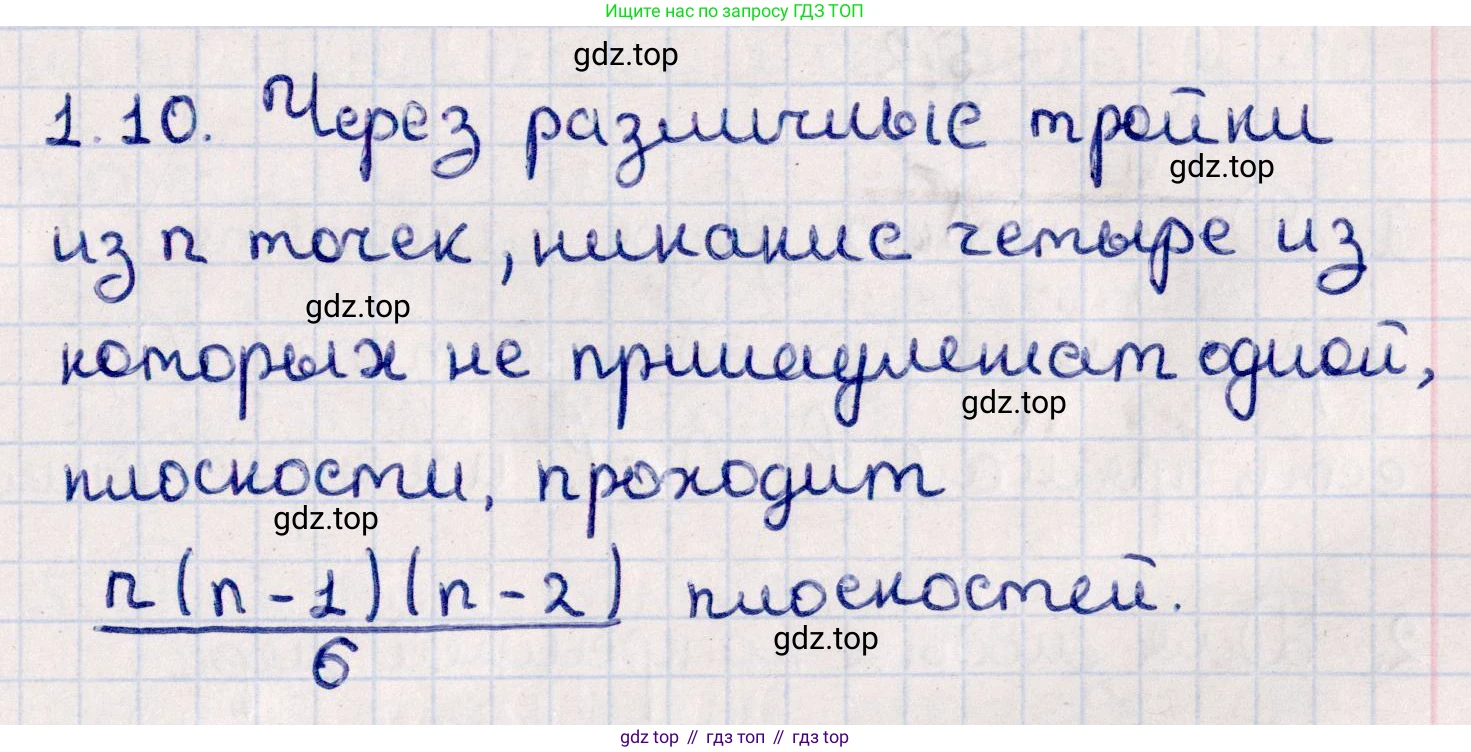 Ищите нас по запросу ГДЗ ТОП
gdz.top
1.10. Через различные тройки
gdz.top
из n точек, никакие четыре из
gdz.top
которых не принадлежат одной,
gdz.top
плоскости, проходит
gdz.top
n(n-1)(n-2) плоскостей.
6
gdz.top
gdz top // гдз топ // гдз top